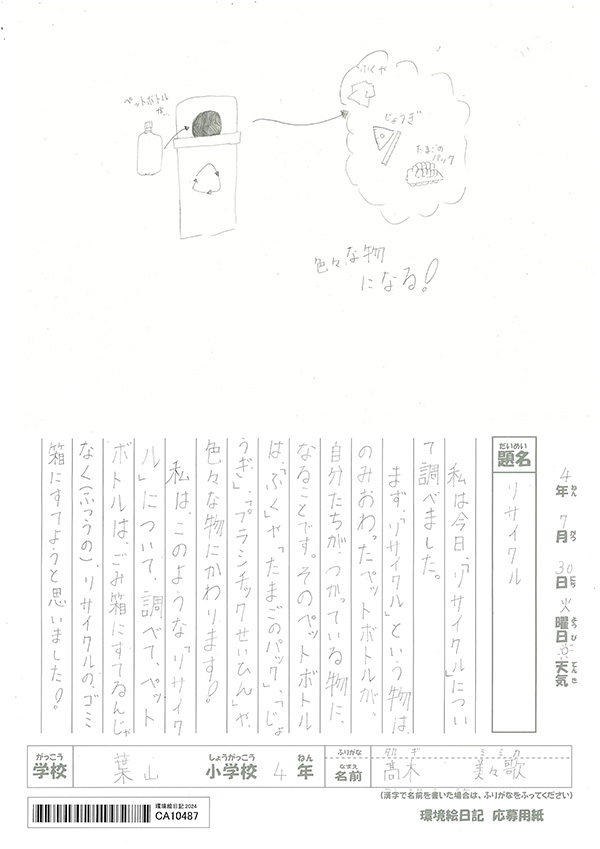 ペットボトル
が…
ふくや
じょうぎ
たまごの
パック
色々な物
になる!
4年 7月 30日 火曜日 天気
ねん がつ にち よう び てん き
だいめい
題名
リサイクル
私は今日、「リサイクル」につい
て調べました。
まず、「リサイクル」という物は、
のみおわったペットボトルが、
自分たちが、つかっている物に、
なることです。そのペットボトル
は、「ふく」や「たまごのパック」、「じょ
うぎ」、「プラシチックせいひん」や、
色々な物にかわります!
私は、このような「リサイク
ル」について、調べて、ペット
ボトルは、ごみ箱にすてるんじゃ
なく(ふつうの)、リサイクルの、ゴミ
箱にすてようと思いました!
がっこう
学校
葉山
しょうがっこう
小学校
4
ねん
年
ふりがな
タカ ギ ミ ミ カ
なまえ
名前
髙木 美々歌
(漢字で名前を書いた場合は、ふりがなをふってください)
環境絵日記2024
CA10487
環境絵日記 応募用紙